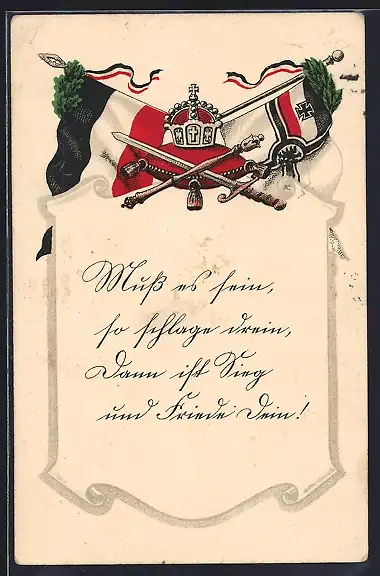 Muß es sein,
so schlage drein,
Dann ist Sieg
und Friede Dein!